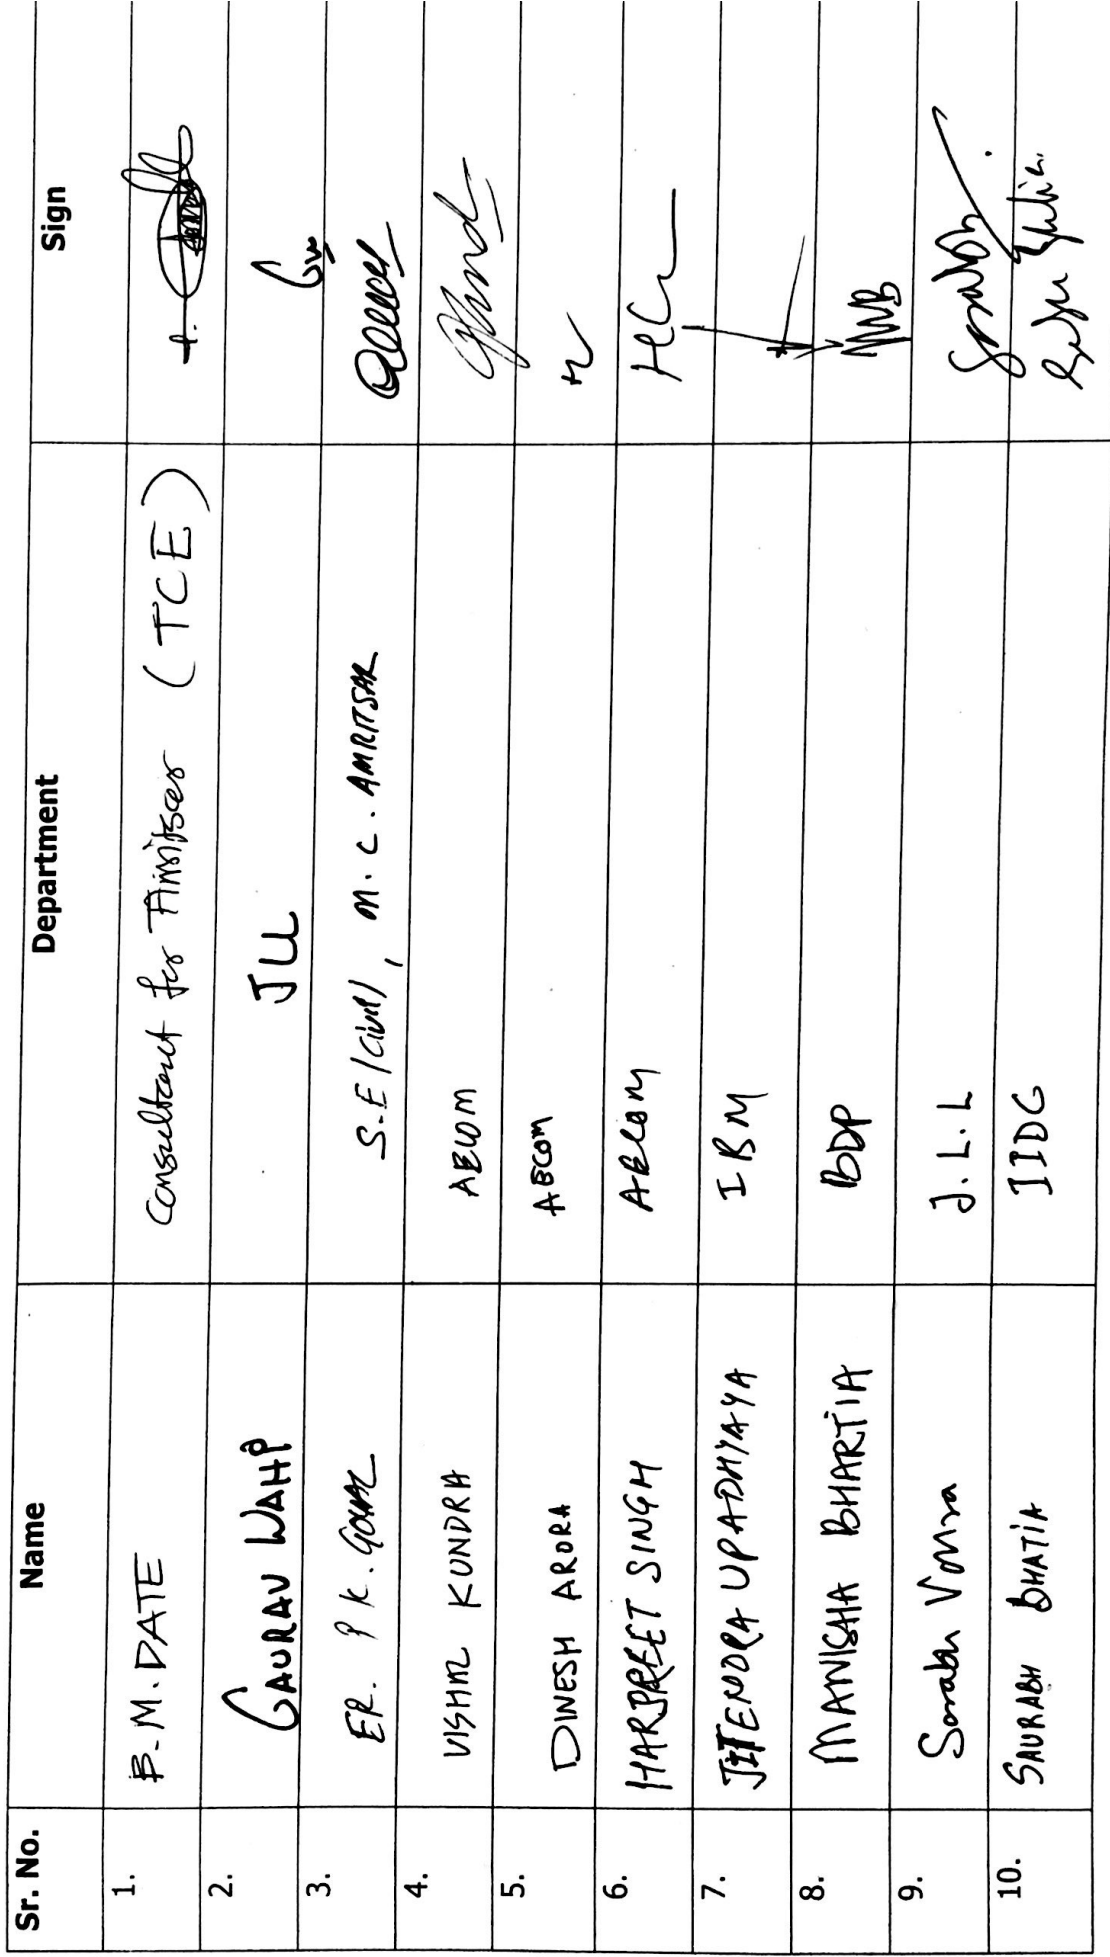 Sr. No. Name Department Sign
1. B.M. DATE Consultant for Amritsar (TCE)
2. GAURAV WAHI JLL
3. ER. P K. GOYAL S.E (Civil), M.C. AMRITSAR
4. VISHAL KUNDRA AECOM
5. DINESH ARORA AECOM
6. HARPREET SINGH AECOM
7. JITENDRA UPADHYAYA IBM
8. MANISHA BHARTIA BDP
9. Sorabh Vohra J.L.L
10. SAURABH BHATIA IIDC